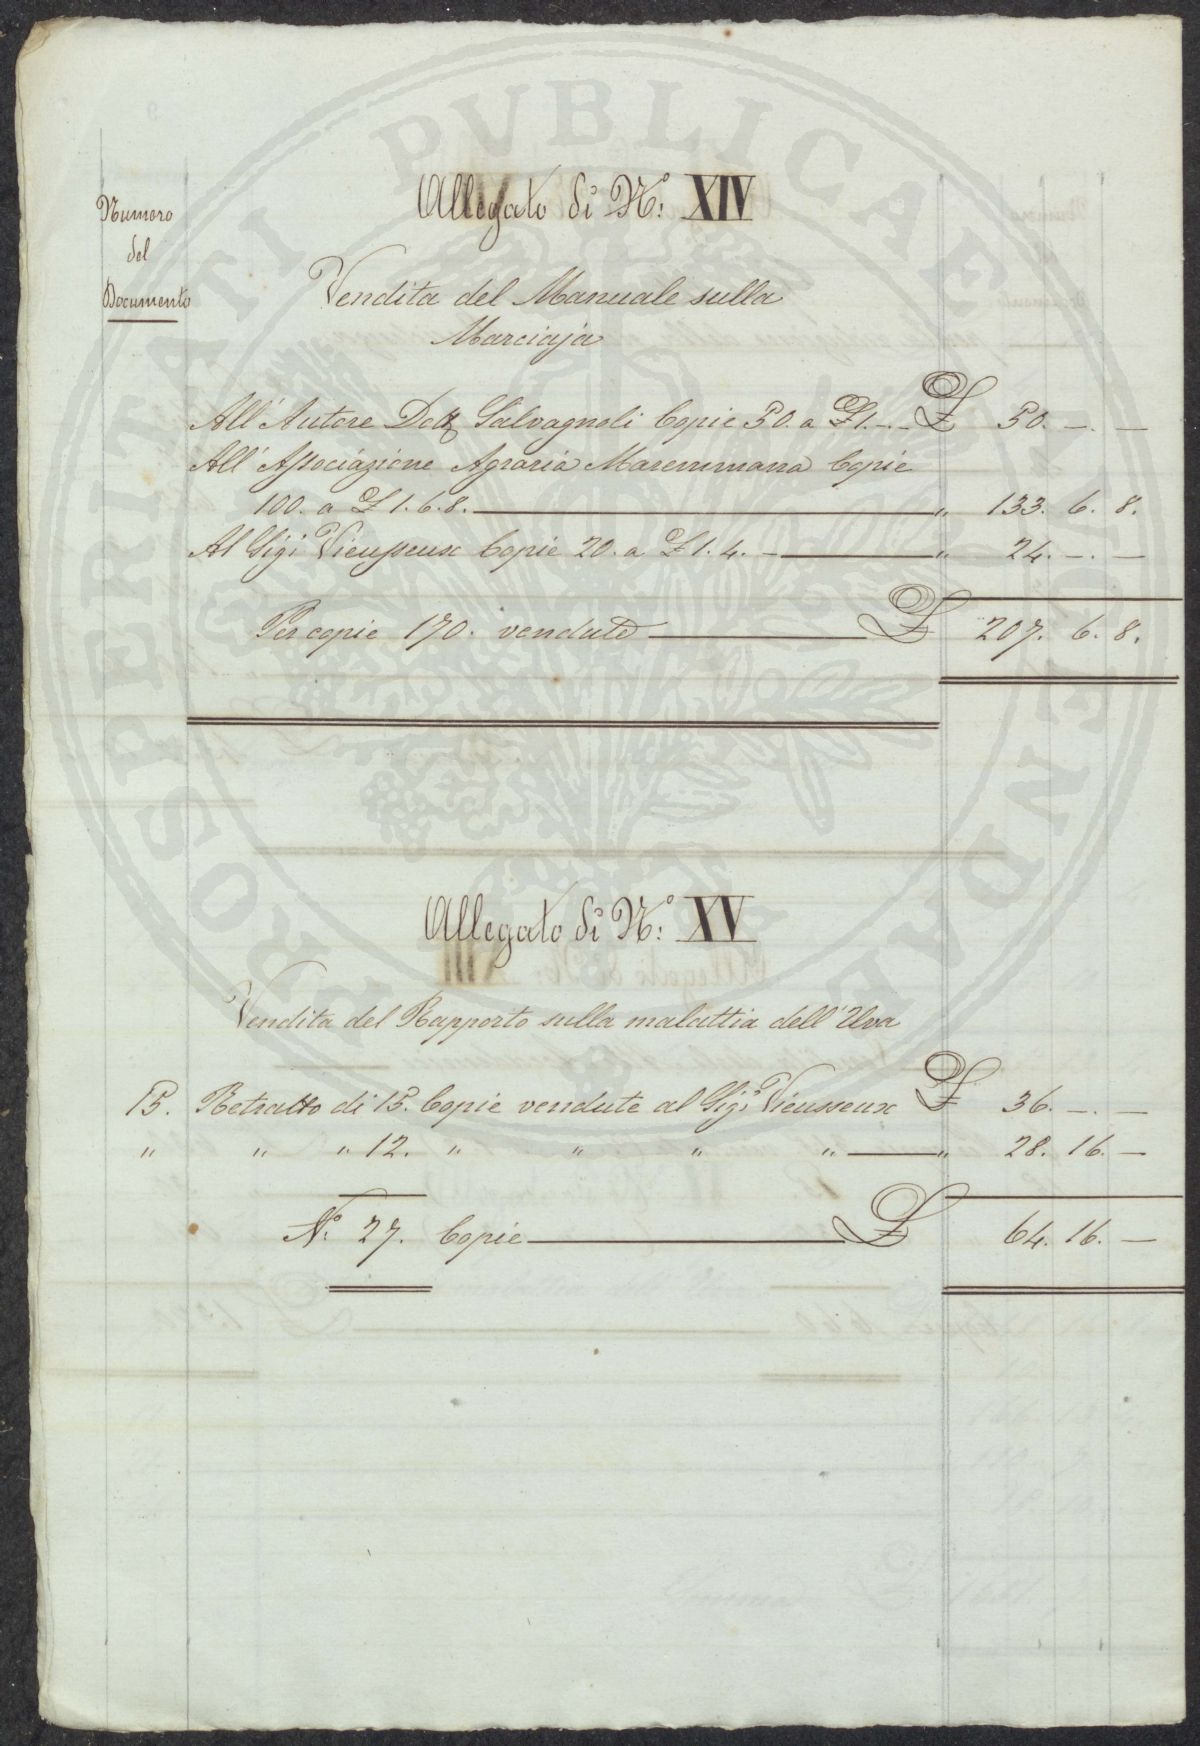 PROSPERITATI PVBLICAE AVGENDAE
Numero
del
Documento
Allegato di N.° XIV
Vendita del Manuale sulla
Marciaja
All'Autore Dott Salvagnoli Copie 50. a £1.-.- £ 50. -. -
All'Associazione Agraria Maremmana Copie
100. a £ 1. 6. 8. " 133. 6. 8.
Al Sigr Vieusseux Copie 20. a £ 1. 4. - " 24. -. -
Per copie 170. vendute £ 207. 6. 8.
Allegato di N.° XV
Vendita del Rapporto sulla malattia dell'Uva
15. Retratto di 15. Copie vendute al Sigr Vieusseux £ 36. -. -
" " " 12. " " " " " 28. 16. -
N.° 27. Copie £ 64. 16. -